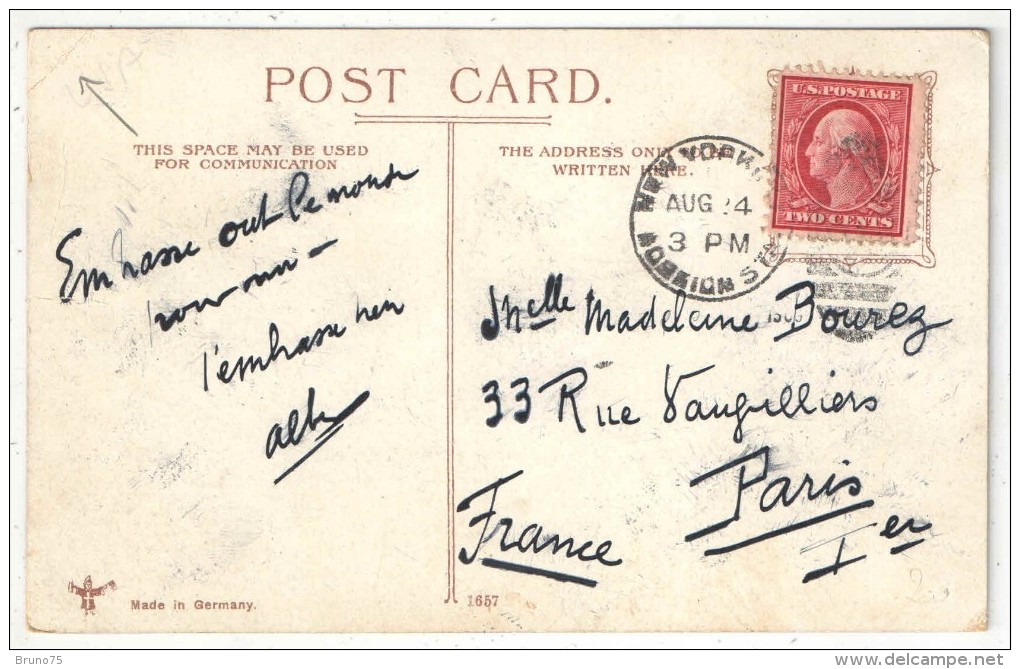 POST CARD.
THIS SPACE MAY BE USED
FOR COMMUNICATION
THE ADDRESS ONLY
WRITTEN HERE.
U.S. POSTAGE
TWO CENTS
NEW YORK, N.Y.
AUG 24
3 PM
FOREIGN STA
Embrasse tout le monde
pour moi —
t'embrasse bien
Melle Madeleine Bourez
33 Rue Vaugilliers
Paris
Ier
France
Made in Germany.
1657
Bruno75
www.delcampe.net